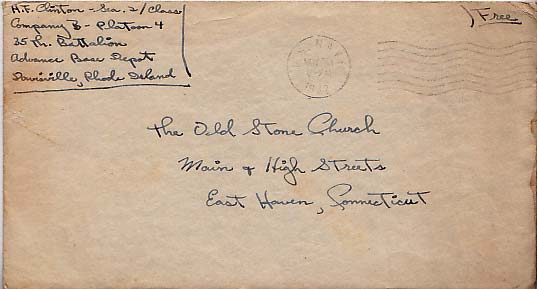 H.F. Clinton - Sea. 2/Class
Company B - Platoon 4
35th. Battalion
Advance Base Depot
Davisville, Rhode Island
Free
The Old Stone Church
Main & High Streets
East Haven, Connecticut